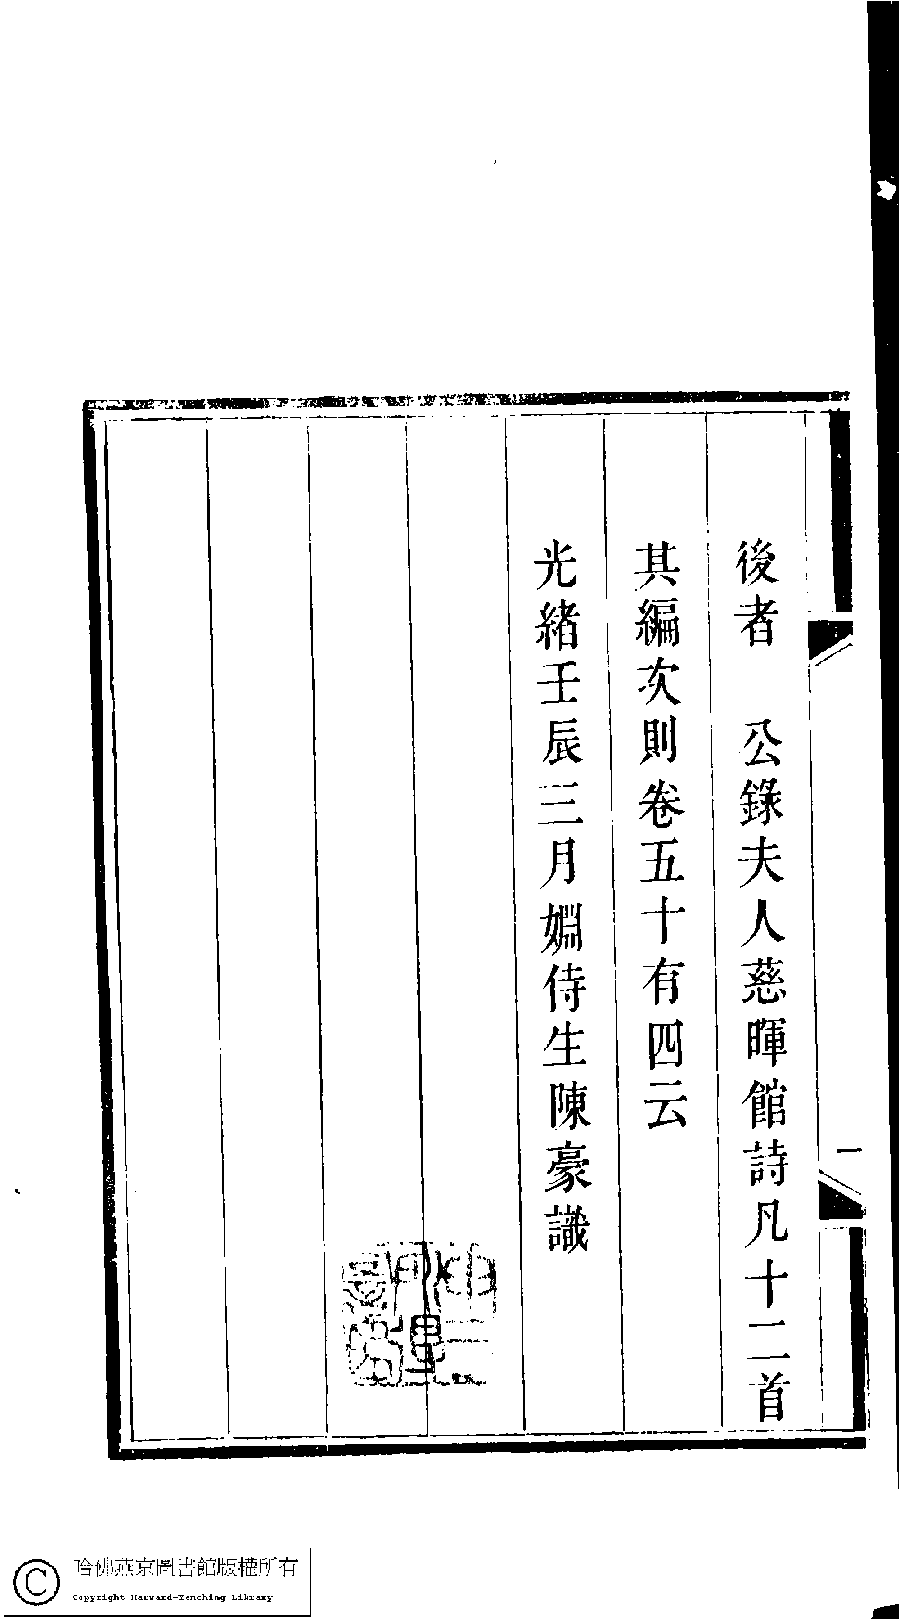 後者　公錄夫人慈暉館詩凡十二首
其編次則卷五十有四云
光緒壬辰三月婣侍生陳豪識
一
哈佛燕京圖書館版權所有
Copyright Harvard-Yenching Library